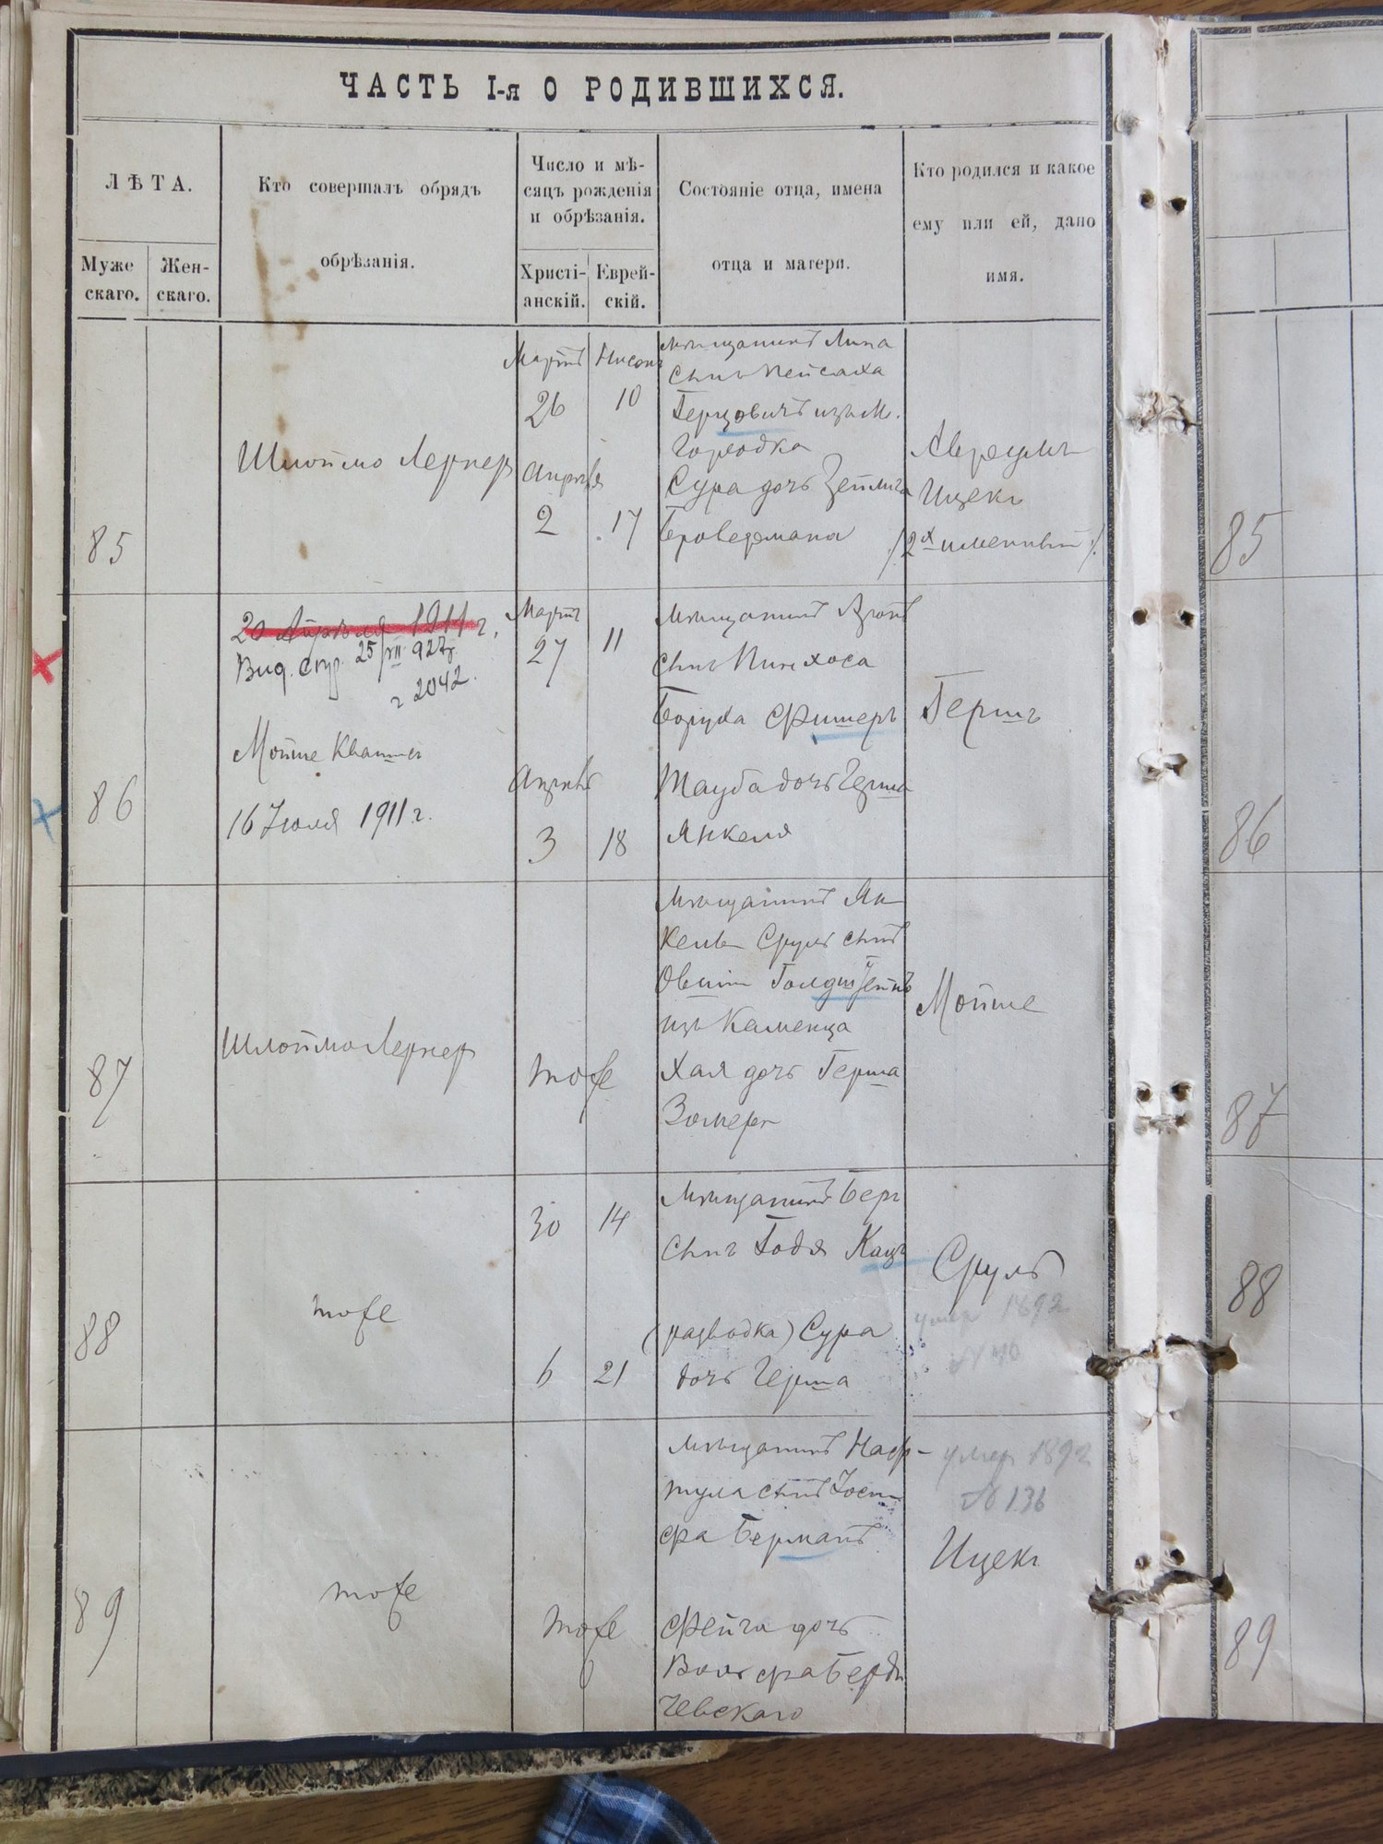 ЧАСТЬ I-я О РОДИВШИХСЯ.
ЛѢТА.
Муже
скаго.
Жен-
скаго.
Кто совершалъ обрядъ
обрѣзанія.
Число и мѣ-
сяцъ рожденія
и обрѣзанія.
Христі-
анскій.
Еврей-
скій.
Состояніе отца, имена
отца и матери.
Кто родился и какое
ему или ей, дано
имя.
85
Шлоймо Лернеръ
Мартъ
26
Апрѣля
2
Нисонъ
10
17
Мѣщанинъ Липа
сынъ Пейсаха
Герцовичъ изъ М.
Городка
Сура дочь Зейлига
Аврумъ
Ицекъ
/2х именный/.
85
86
20 Апрѣля 1911 г.
Выд. спр. 25/VII 927г.
2042.
Мойше Квашъ
16 Іюля 1911 г.
Мартъ
27
Апрѣль
3
11
18
Мѣщанинъ Аронъ
сынъ Пинхоса
Боруха Фишеръ
Тауба дочь Герша
Янкеля
Гершъ
86
87
Шлоймо Лернеръ
тоже
Мѣщанинъ Ян-
кель Сруль сынъ
Овшія Голдштейнъ
изъ Каменца
Хая дочь Герша
Зомеръ
Мойше
87
88
тоже
30
6
14
21
Мѣщанинъ Беръ
сынъ Годя Кацъ
(разводка) Сура
дочь Герша
Сруль
умеръ 1892
№ 40
88
89
тоже
тоже
Мѣщанинъ Наф-
тула сынъ Іоси-
фа Берманъ
Фейга дочь
Вольфа Берди
чевскаго
умеръ 1892
№ 136
Ицекъ
89